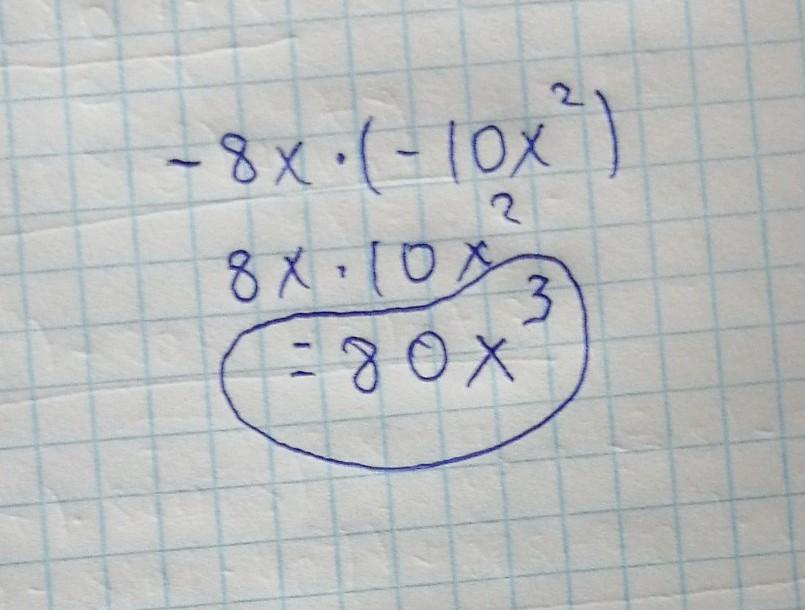 -8x·(-10x²)
8x·10x²
=80x³